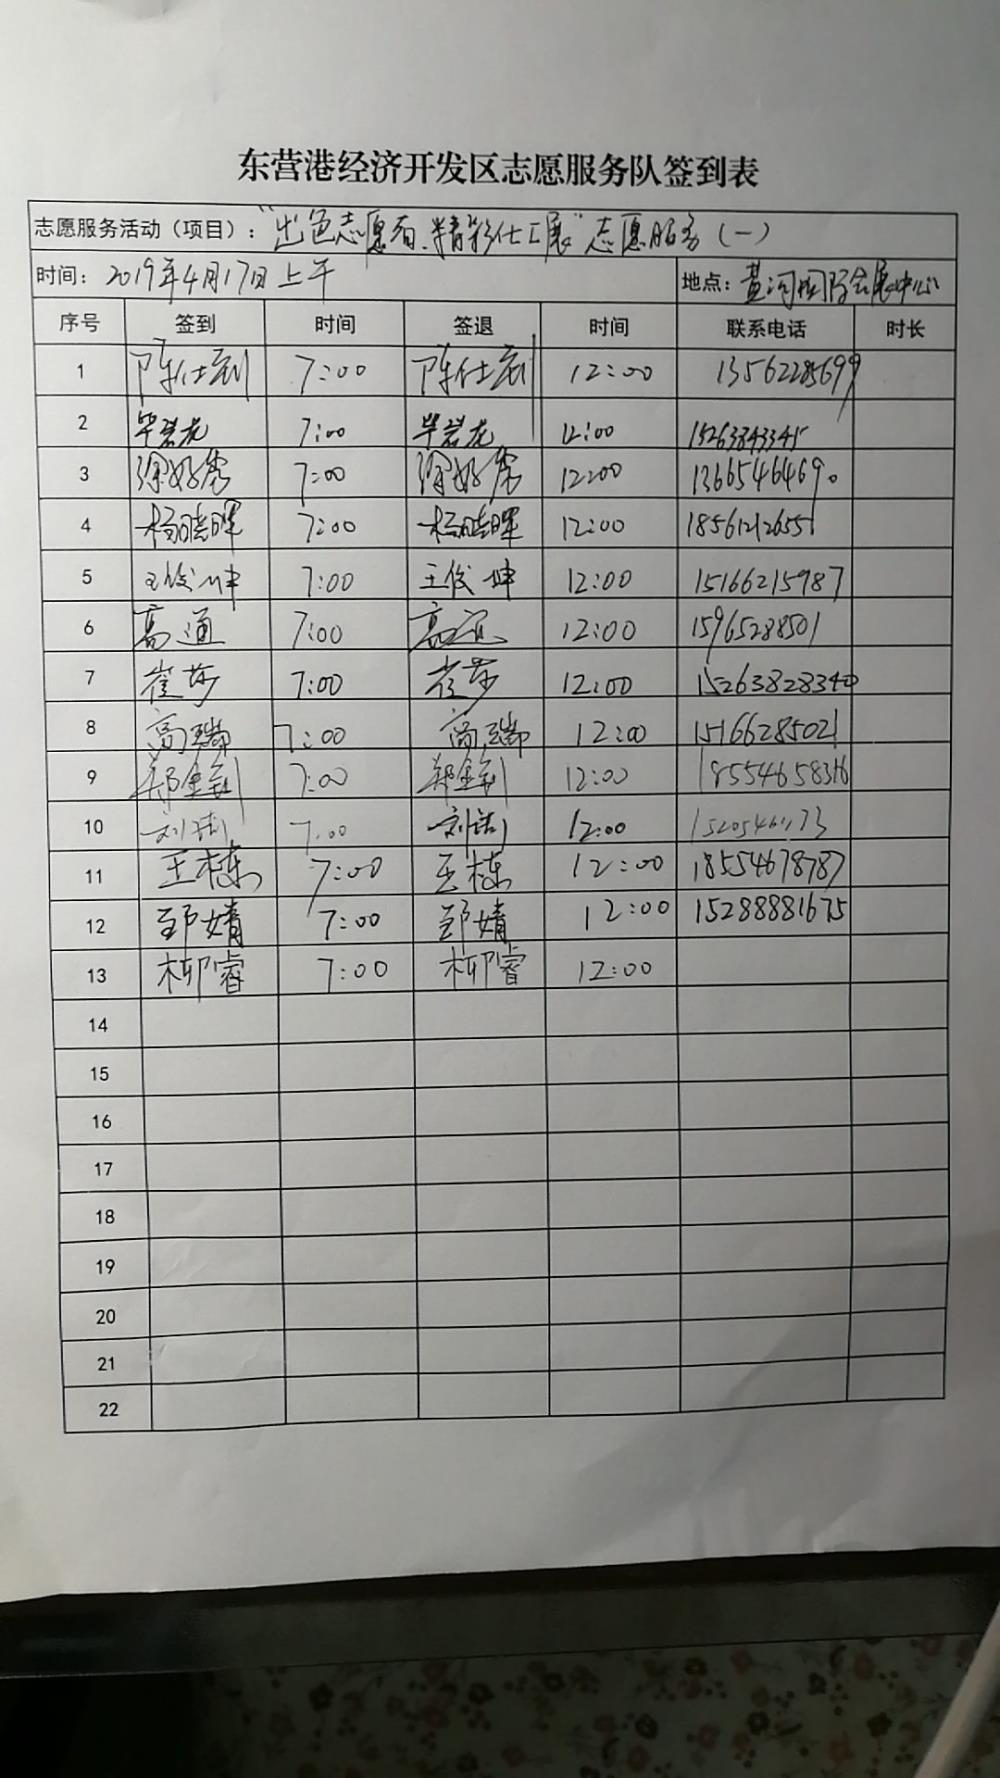 东营港经济开发区志愿服务队签到表
志愿服务活动（项目）："出色志愿者、精彩化工展"志愿服务（一）
时间：2019年4月17日上午 地点：黄河国际会展中心
序号 签到 时间 签退 时间 联系电话 时长
1 陈仕刚 7:00 陈仕刚 12:00 13562285699
2 毕岩龙 7:00 毕岩龙 12:00 15263843345
3 徐好秀 7:00 徐好秀 12:00 13665464690
4 杨晓晖 7:00 杨晓晖 12:00 18561212655
5 王俊坤 7:00 王俊坤 12:00 15166215987
6 高通 7:00 高通 12:00 15965288501
7 崔莎 7:00 崔莎 12:00 15263828340
8 高瑞 7:00 高瑞 12:00 15166285021
9 郑金钊 7:00 郑金钊 12:00 18554658316
10 7:00 12:00
11 王栋 7:00 王栋 12:00 18554678787
12 邹婧 7:00 邹婧 12:00 15288881675
13 柳睿 7:00 柳睿 12:00
14
15
16
17
18
19
20
21
22